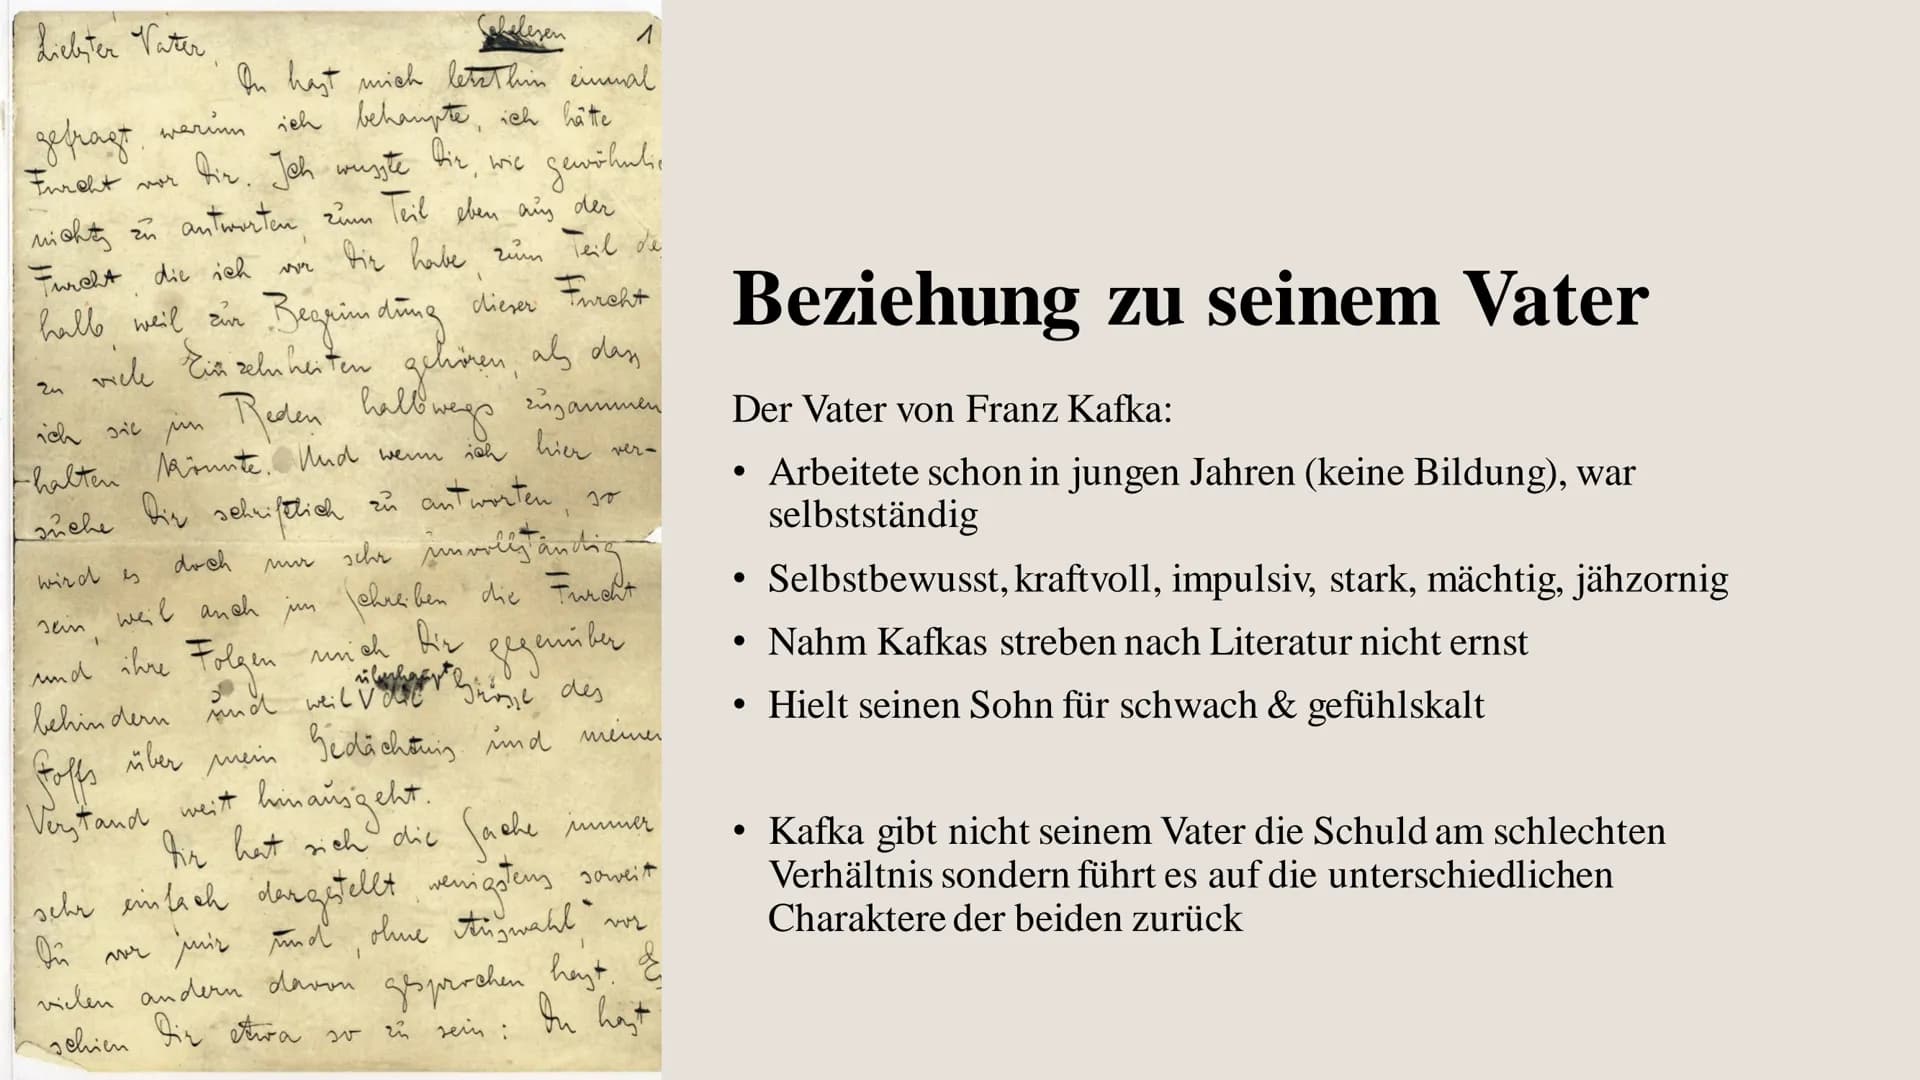 Liebster Vater,
1
Du hast mich letzthin einmal
gefragt, warum ich behaupte, ich hätte
Furcht vor Dir. Ich wusste Dir, wie gewöhnlic
nichts zu antworten, zum Teil eben aus der
Furcht, die ich vor Dir habe, zum Teil de
halb, weil zur Begründung dieser Furcht
zu viele Einzelnheiten gehören, als dass
ich sie im Reden halbwegs zusammen
halten könnte. Und wenn ich hier ver-
suche Dir schriftlich zu antworten, so
wird es doch nur sehr unvollständig
sein, weil auch im Schreiben die Furcht
und ihre Folgen mich Dir gegenüber
überhaupt
behindern und weil die Grösse des
Stoffs über mein Gedächtnis und meinen
Verstand weit hinausgeht.
Dir hat sich die Sache immer
sehr einfach dargestellt, wenigstens soweit
Du vor mir und, ohne Auswahl, vor
vielen andern davon gesprochen hast. E
schien Dir etwa so zu sein: Du hast
Beziehung zu seinem Vater
Der Vater von Franz Kafka:
• Arbeitete schon in jungen Jahren (keine Bildung), war
selbstständig
• Selbstbewusst, kraftvoll, impulsiv, stark, mächtig, jähzornig
• Nahm Kafkas streben nach Literatur nicht ernst
• Hielt seinen Sohn für schwach & gefühlskalt
• Kafka gibt nicht seinem Vater die Schuld am schlechten
Verhältnis sondern führt es auf die unterschiedlichen
Charaktere der beiden zurück